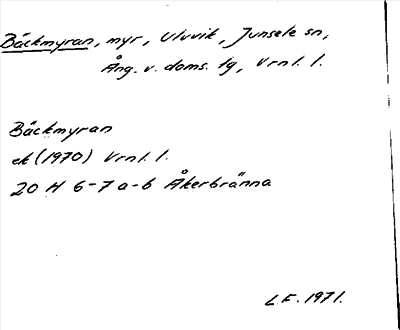 Bäckmyran, myr, Uluvik, Junsele sn,
Ång. v. doms. tg, Vrnl. l.
Bäckmyran
ek (1970) Vrnl. l.
20 H 6-7 a-b Åkerbränna
L.F. 1971.